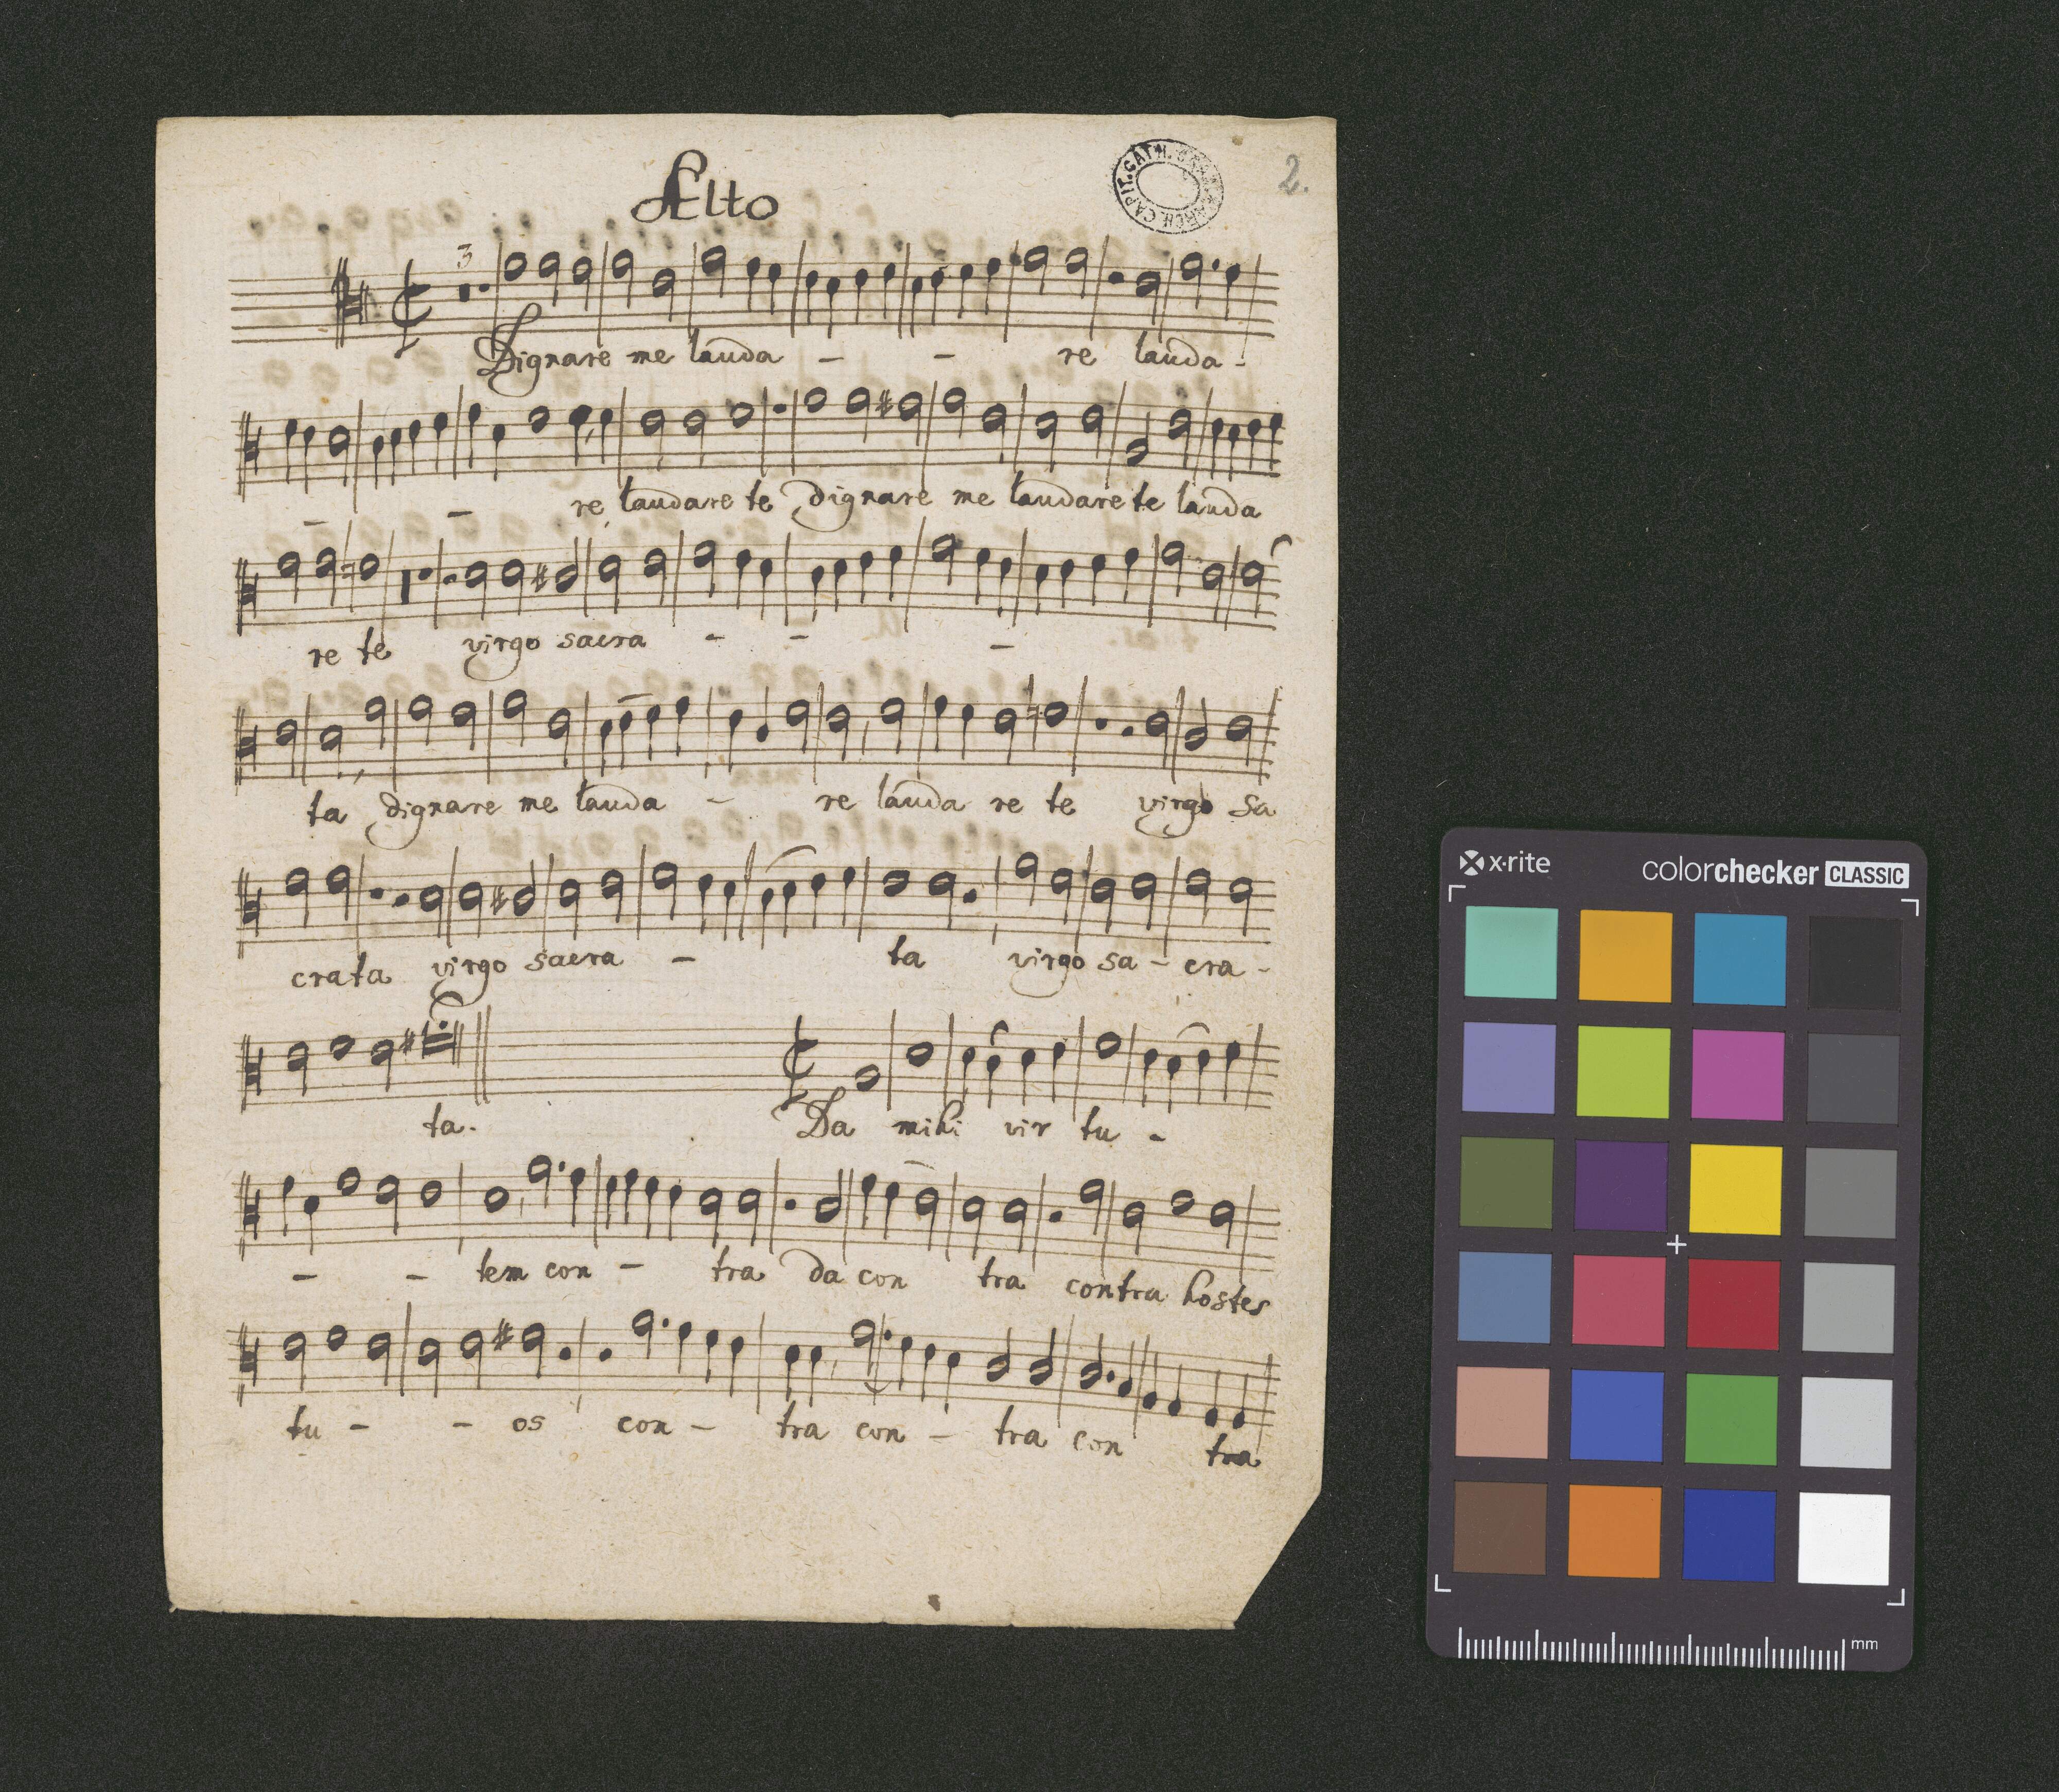 Alto
2.
3
Dignare me lauda - - re lauda -
- - re laudare te dignare me laudare te lauda
re te virgo sacra - - -
ta dignare me lauda - re lauda re te virgo sa
crata virgo sacra - ta virgo sa - cra -
ta. Da mihi vir tu -
- - tem con - tra da con tra contra hostes
tu - - os con - tra con - tra con tra
x·rite colorchecker CLASSIC
mm